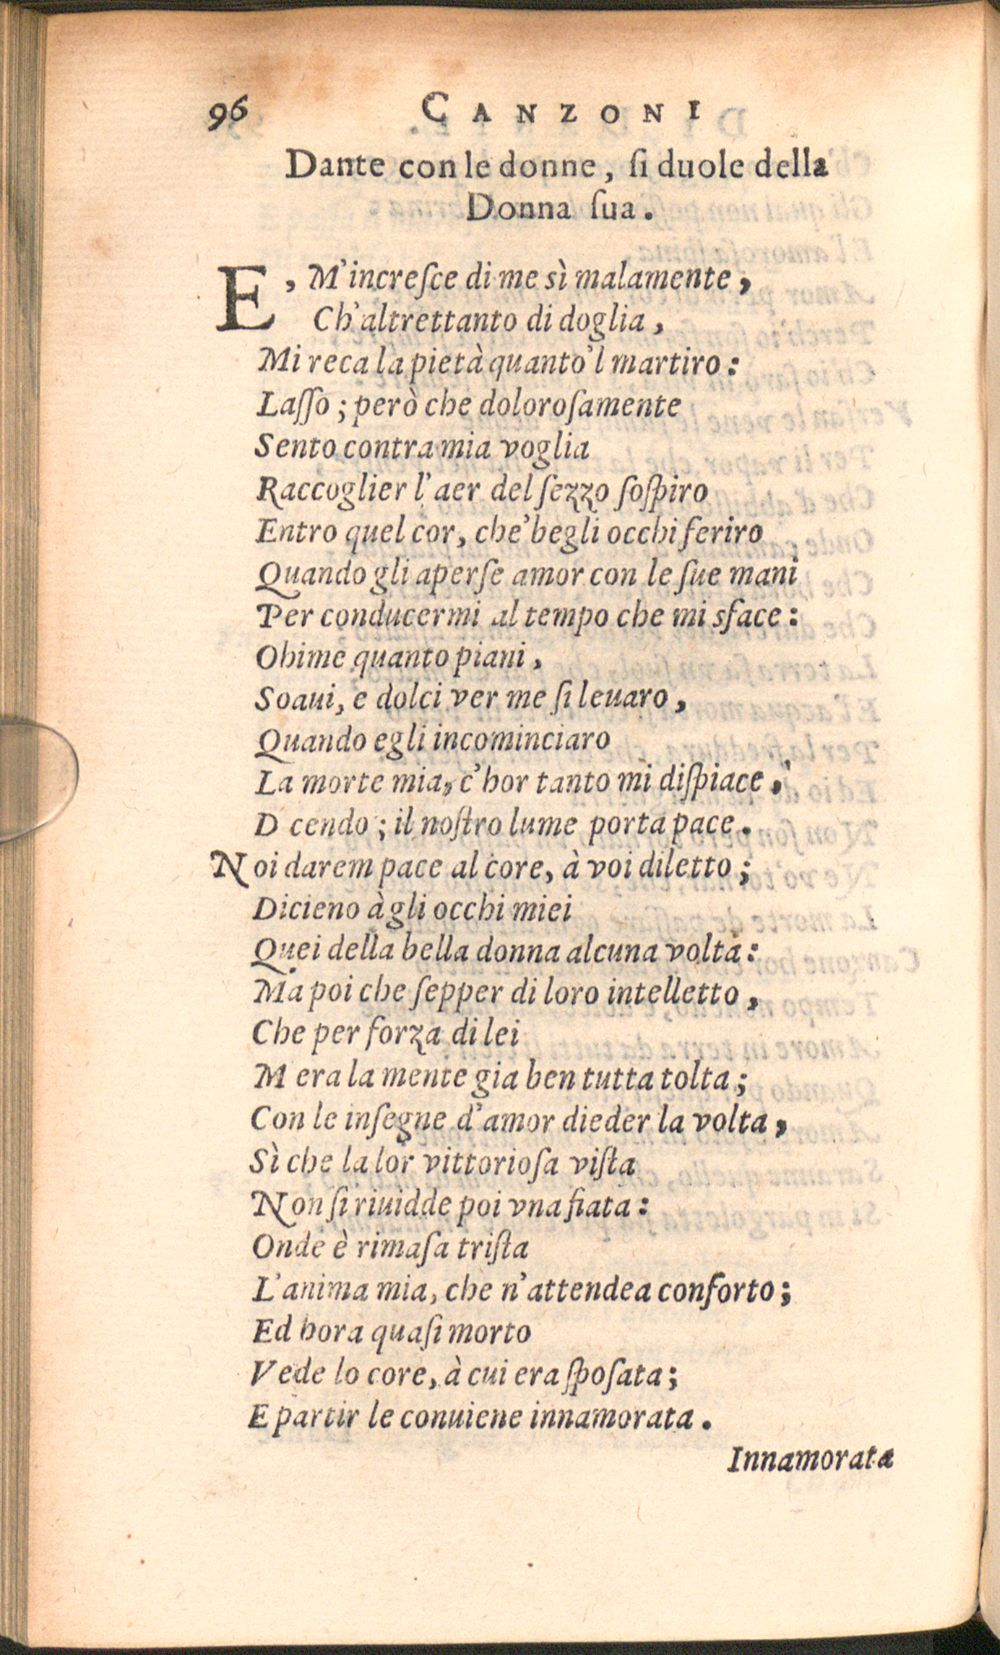 96 CANZONI
Dante con le donne, ſi duole della
Donna ſua.
E, M'increſce di me sì malamente,
Ch'altrettanto di doglia,
Mi reca la pietà quanto'l martiro:
Laſſo; però che doloroſamente
Sento contra mia voglia
Raccoglier l'aer del ſezzo ſoſpiro
Entro quel cor, che'begli occhi feriro
Quando gli aperſe amor con le ſue mani
Per conducermi al tempo che mi sface:
Ohime quanto piani,
Soaui, e dolci ver me ſi leuaro,
Quando egli incominciaro
La morte mia, c'hor tanto mi diſpiace,
D cendo; il noſtro lume porta pace.
Noi darem pace al core, à voi diletto;
Dicieno à gli occhi miei
Quei della bella donna alcuna volta:
Ma poi che ſepper di loro intelletto,
Che per forza di lei
M era la mente gia ben tutta tolta;
Con le inſegne d'amor dieder la volta,
Sì che la lor vittorioſa viſta
Non ſi riuidde poi vna fiata:
Onde è rimaſa triſta
L'anima mia, che n'attendea conforto;
Ed hora quaſi morto
Vede lo core, à cui era ſpoſata;
E partir le conuiene innamorata.
Innamorata